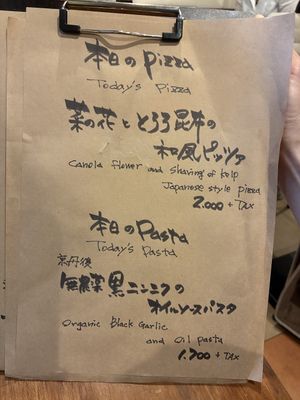 本日のpizza
Today's Pizza
菜の花ととろろ昆布の
和風ピッツァ
Canola flower and shaving of kelp
Japanese style pizza
2.000 + TAX
本日のPasta
Today's Pasta
京丹後
無農薬黒ニンニクの
オイルソースパスタ
Organic Black Garlic
and Oil pasta
1.700 + TAX